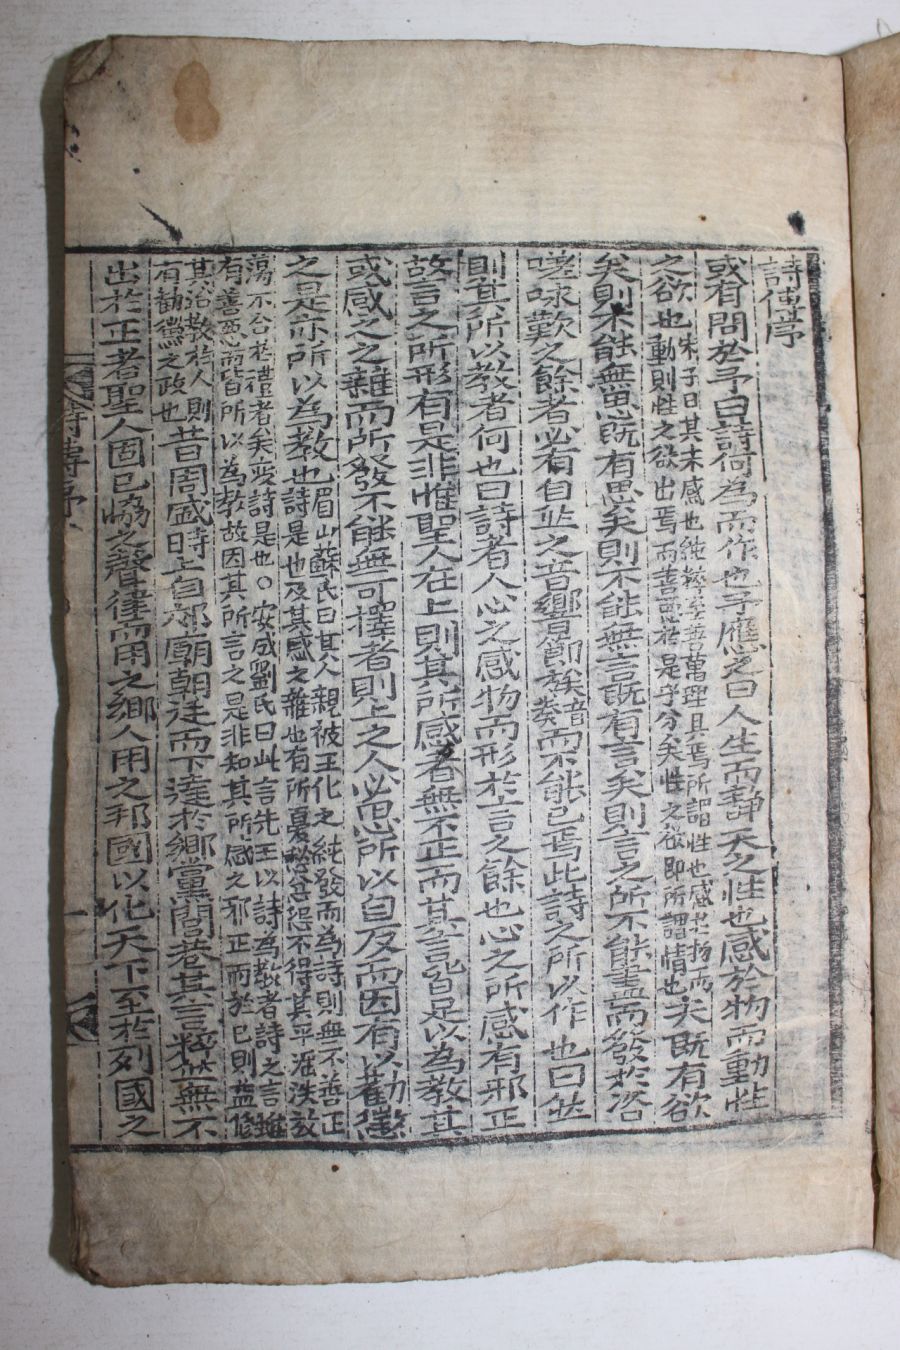 詩傳序
或有問於予曰詩何為而作也予應之曰人生而靜天之性也感於物而動性
之欲也朱子曰其未感也純粹至善萬理具焉所謂性也感於物而動則性之欲出焉而善惡於是乎分矣性之欲即所謂情也夫既有欲
矣則不能無思既有思矣則不能無言既有言矣則言之所不能盡而發於咨
嗟咏歎之餘者必有自然之音響節族音奏而不能已焉此詩之所以作也曰然
則其所以教者何也曰詩者人心之感物而形於言之餘也心之所感有邪正
故言之所形有是非惟聖人在上則其所感者無不正而其言皆足以為教其
或感之之雜而所發不能無可擇者則上之人必思所以自反而因有以勸懲
之是亦所以為教也眉山蘇氏曰其人親被王化之純發而為詩則無不善正詩是也及其感之雜也有所憂愁甚怨不得其平淫泆放
蕩不合於禮者矣変詩是也○安成劉氏曰此言先王以詩為教者詩之言雖有善惡而皆所以為教故因其所言之是非知其所感之邪正而於已則益修
其治教於人則有勸懲之政也昔周盛時上自郊廟朝廷而下達於鄉黨閭巷其言粹然無不
出於正者聖人固已恊之聲律而用之鄉人用之邦國以化天下至於列國之
詩傳序